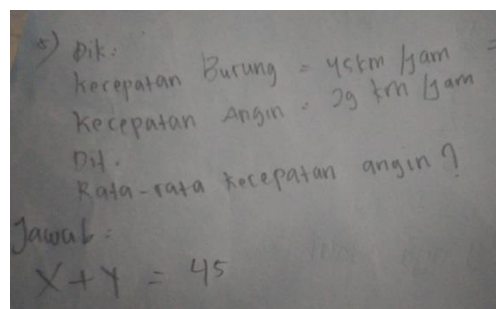 5) Dik:
Kecepatan Burung = 45 km/jam =
Kecepatan Angin = 29 km/jam
Dit.
Rata-rata kecepatan angin?
Jawab:
X+Y = 45